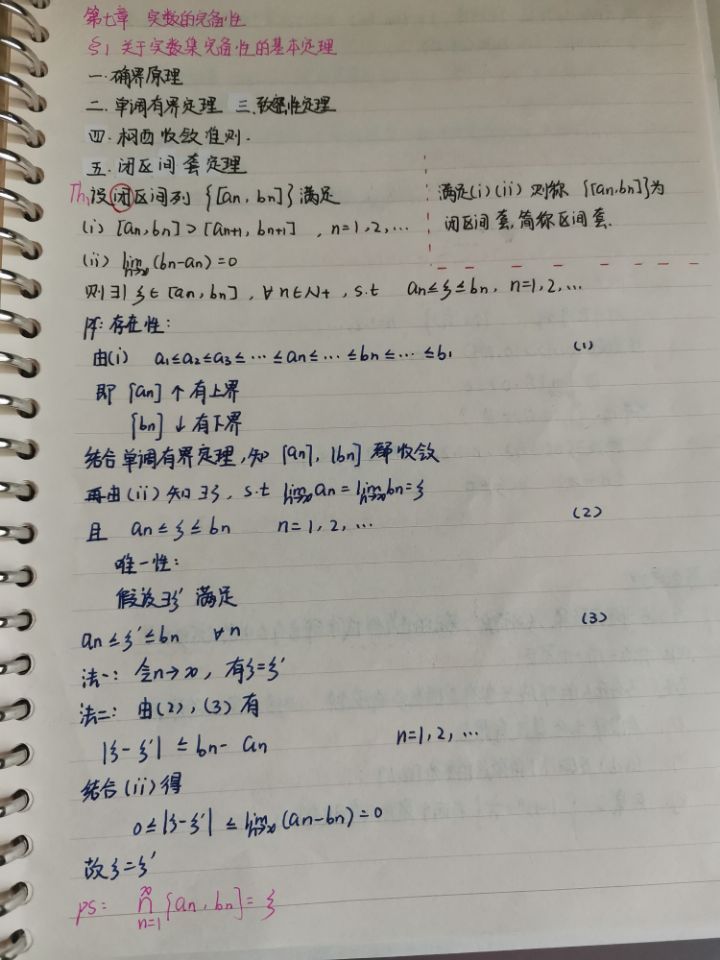 第七章 实数的完备性
§1 关于实数集完备性的基本定理
一.确界原理
二.单调有界定理 三.致密性定理
四.柯西收敛准则.
五.闭区间套定理
Th₁ 设闭区间列 {[an,bn]}满足
(i) [an,bn]⊃[an+1,bn+1] , n=1,2,…
(ii) lim n→∞ (bn-an)=0
满足(i)(ii) 则称 {[an,bn]}为
闭区间套,简称区间套.
则∃! ξ∈[an,bn], ∀n∈N+, s.t an≤ξ≤bn, n=1,2,…
Pf: 存在性:
由(i) a₁≤a₂≤a₃≤…≤an≤…≤bn≤…≤b₁ (1)
即 {an}↑有上界
{bn}↓有下界
结合单调有界定理,知 {an},{bn} 都收敛
再由(ii)知∃ξ, s.t lim n→∞ an=lim n→∞ bn=ξ
且 an≤ξ≤bn n=1,2,… (2)
唯一性:
假设∃ξ′ 满足
an≤ξ′≤bn ∀n (3)
法一: 令n→∞, 有ξ=ξ′
法二: 由(2),(3)有
|ξ-ξ′|≤bn-an n=1,2,…
结合(ii)得
0≤|ξ-ξ′|≤lim n→∞ (an-bn)=0
故ξ=ξ′
ps: ∞∩n=1 [an,bn]=ξ